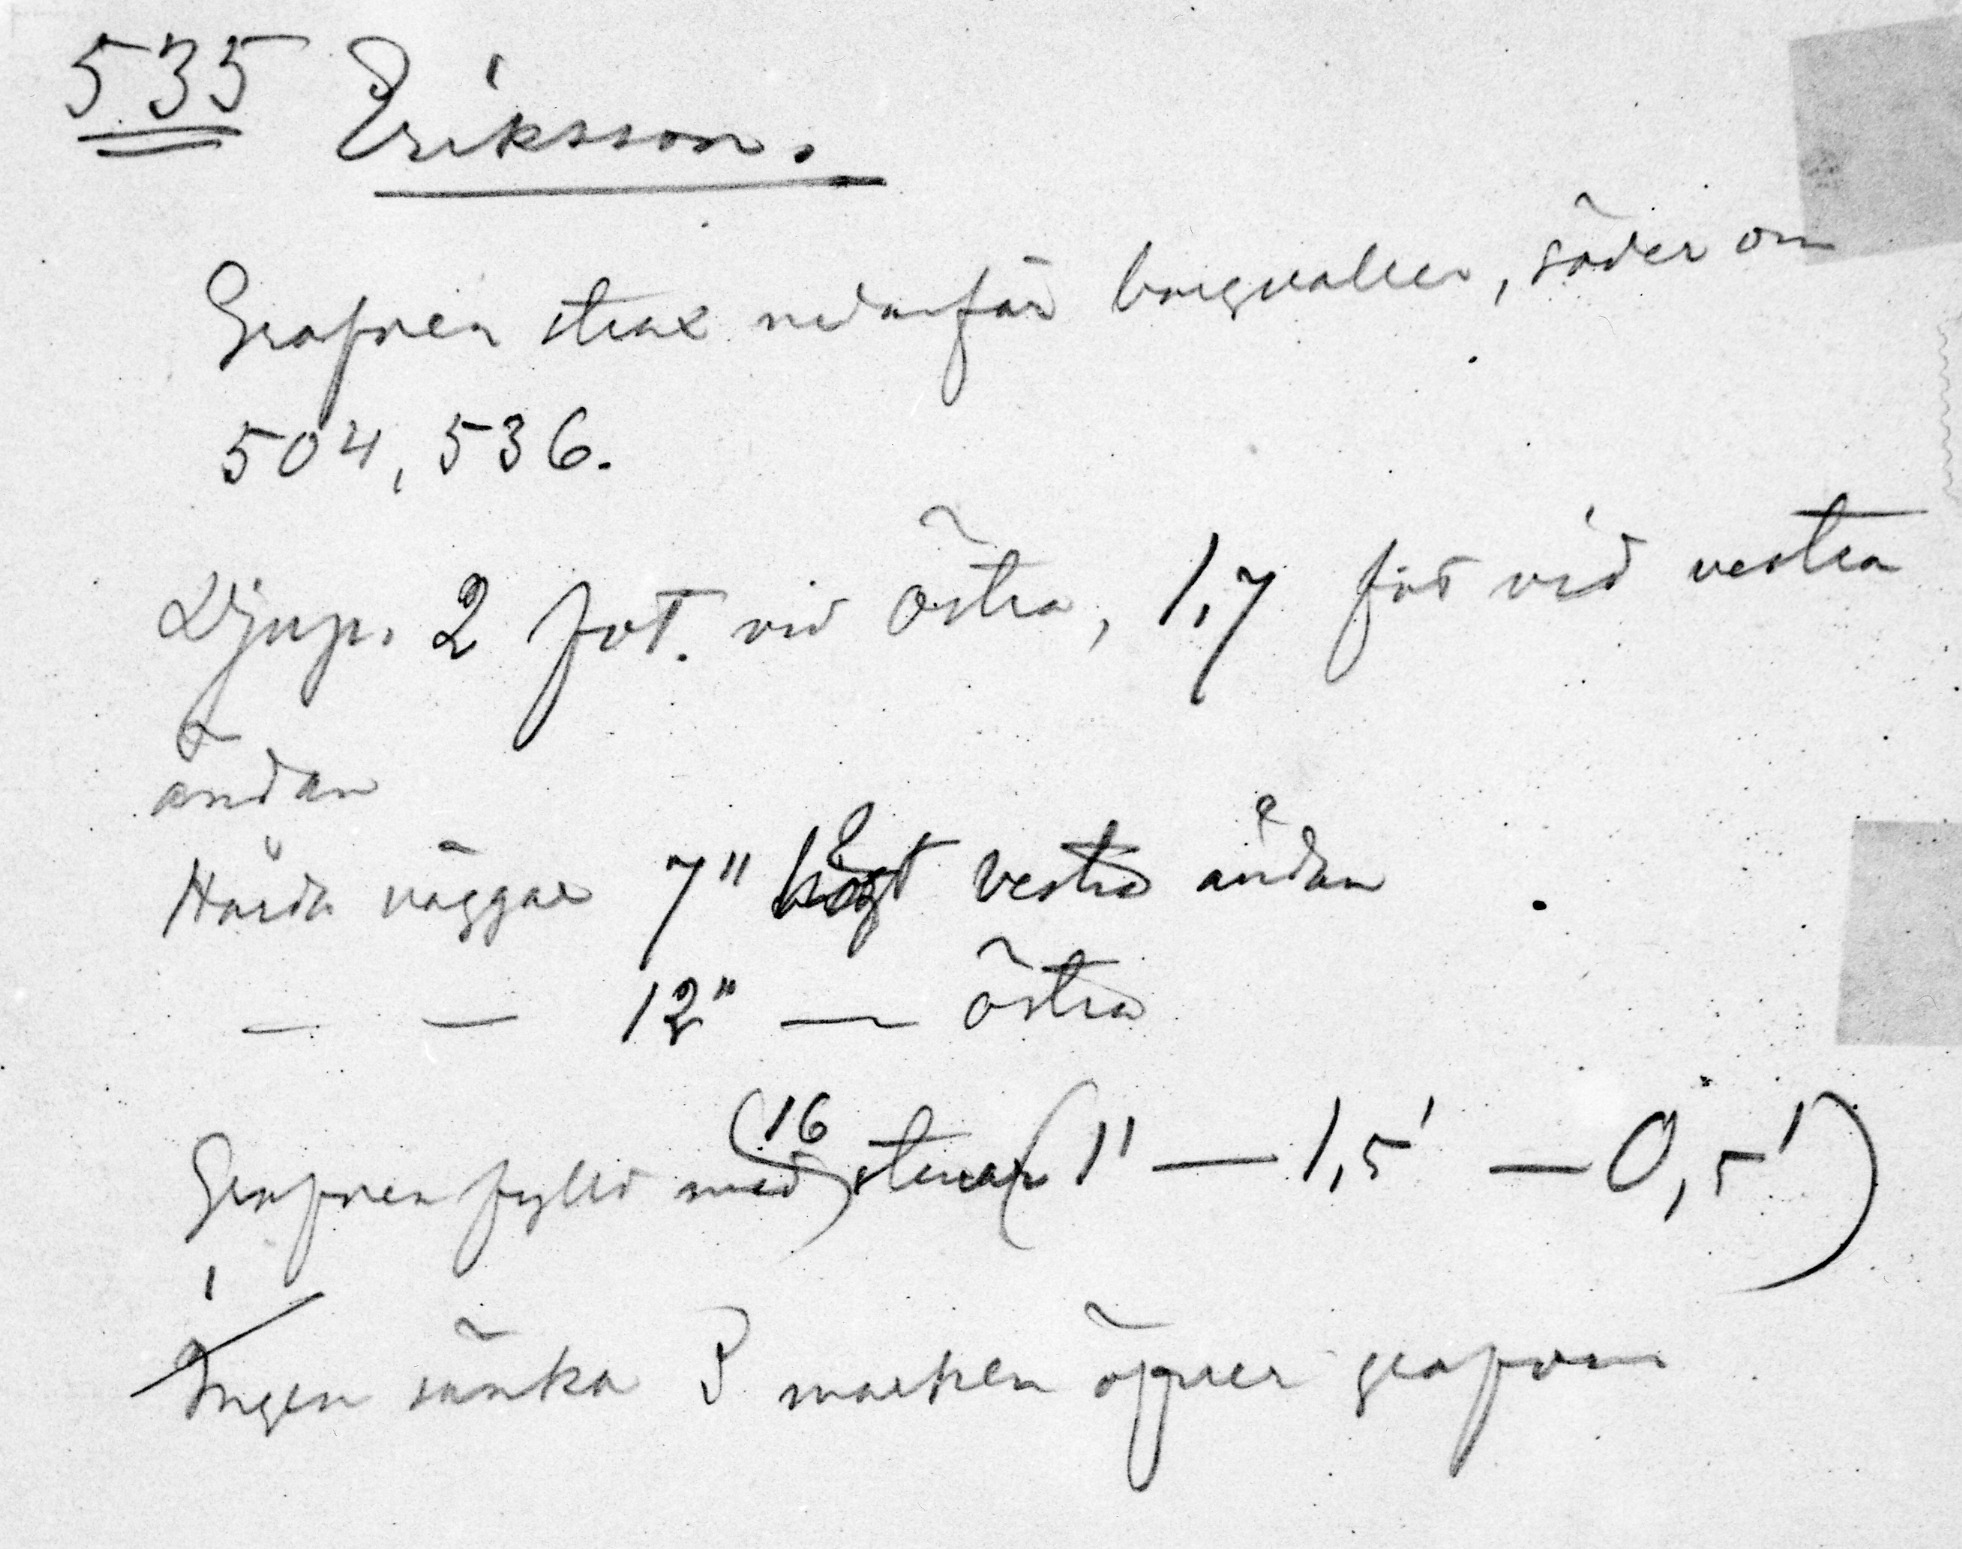 535 Eriksson.
Grafven strax nedanför borgvallen, söder om
504, 536.
Djup. 2 fot. vid östra, 1,7 fot vid vestra
ändan
Hårda väggar 7" högt vestra ändan
— — 12" — östra
Grafven fylld med (16) stenar (1' — 1,5' — 0,5')
Ingen sänka i marken öfver grafven